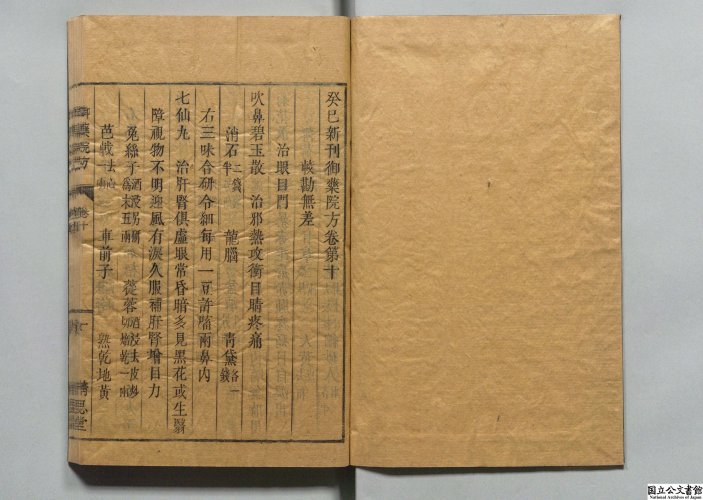 癸巳新刊御藥院方卷第十
峻勘無差
治眼目門
吹鼻碧玉散　治邪熱攻衝目睛疼痛
消石半二錢　龍腦　青黛各一錢
右三味合研令細每用一豆許㗜兩鼻內
七仙丸　治肝腎俱虛眼常昏暗多見黑花或生翳
障視物不明迎風有淚久服補肝腎增目力
兔絲子酒浸另研為末五兩　蓯蓉酒浸去皮切焙乾一兩
芭戟去心一兩　車前子　熟乾地黃
御藥院方
卷十
精思堂
国立公文書館
National Archives of Japan